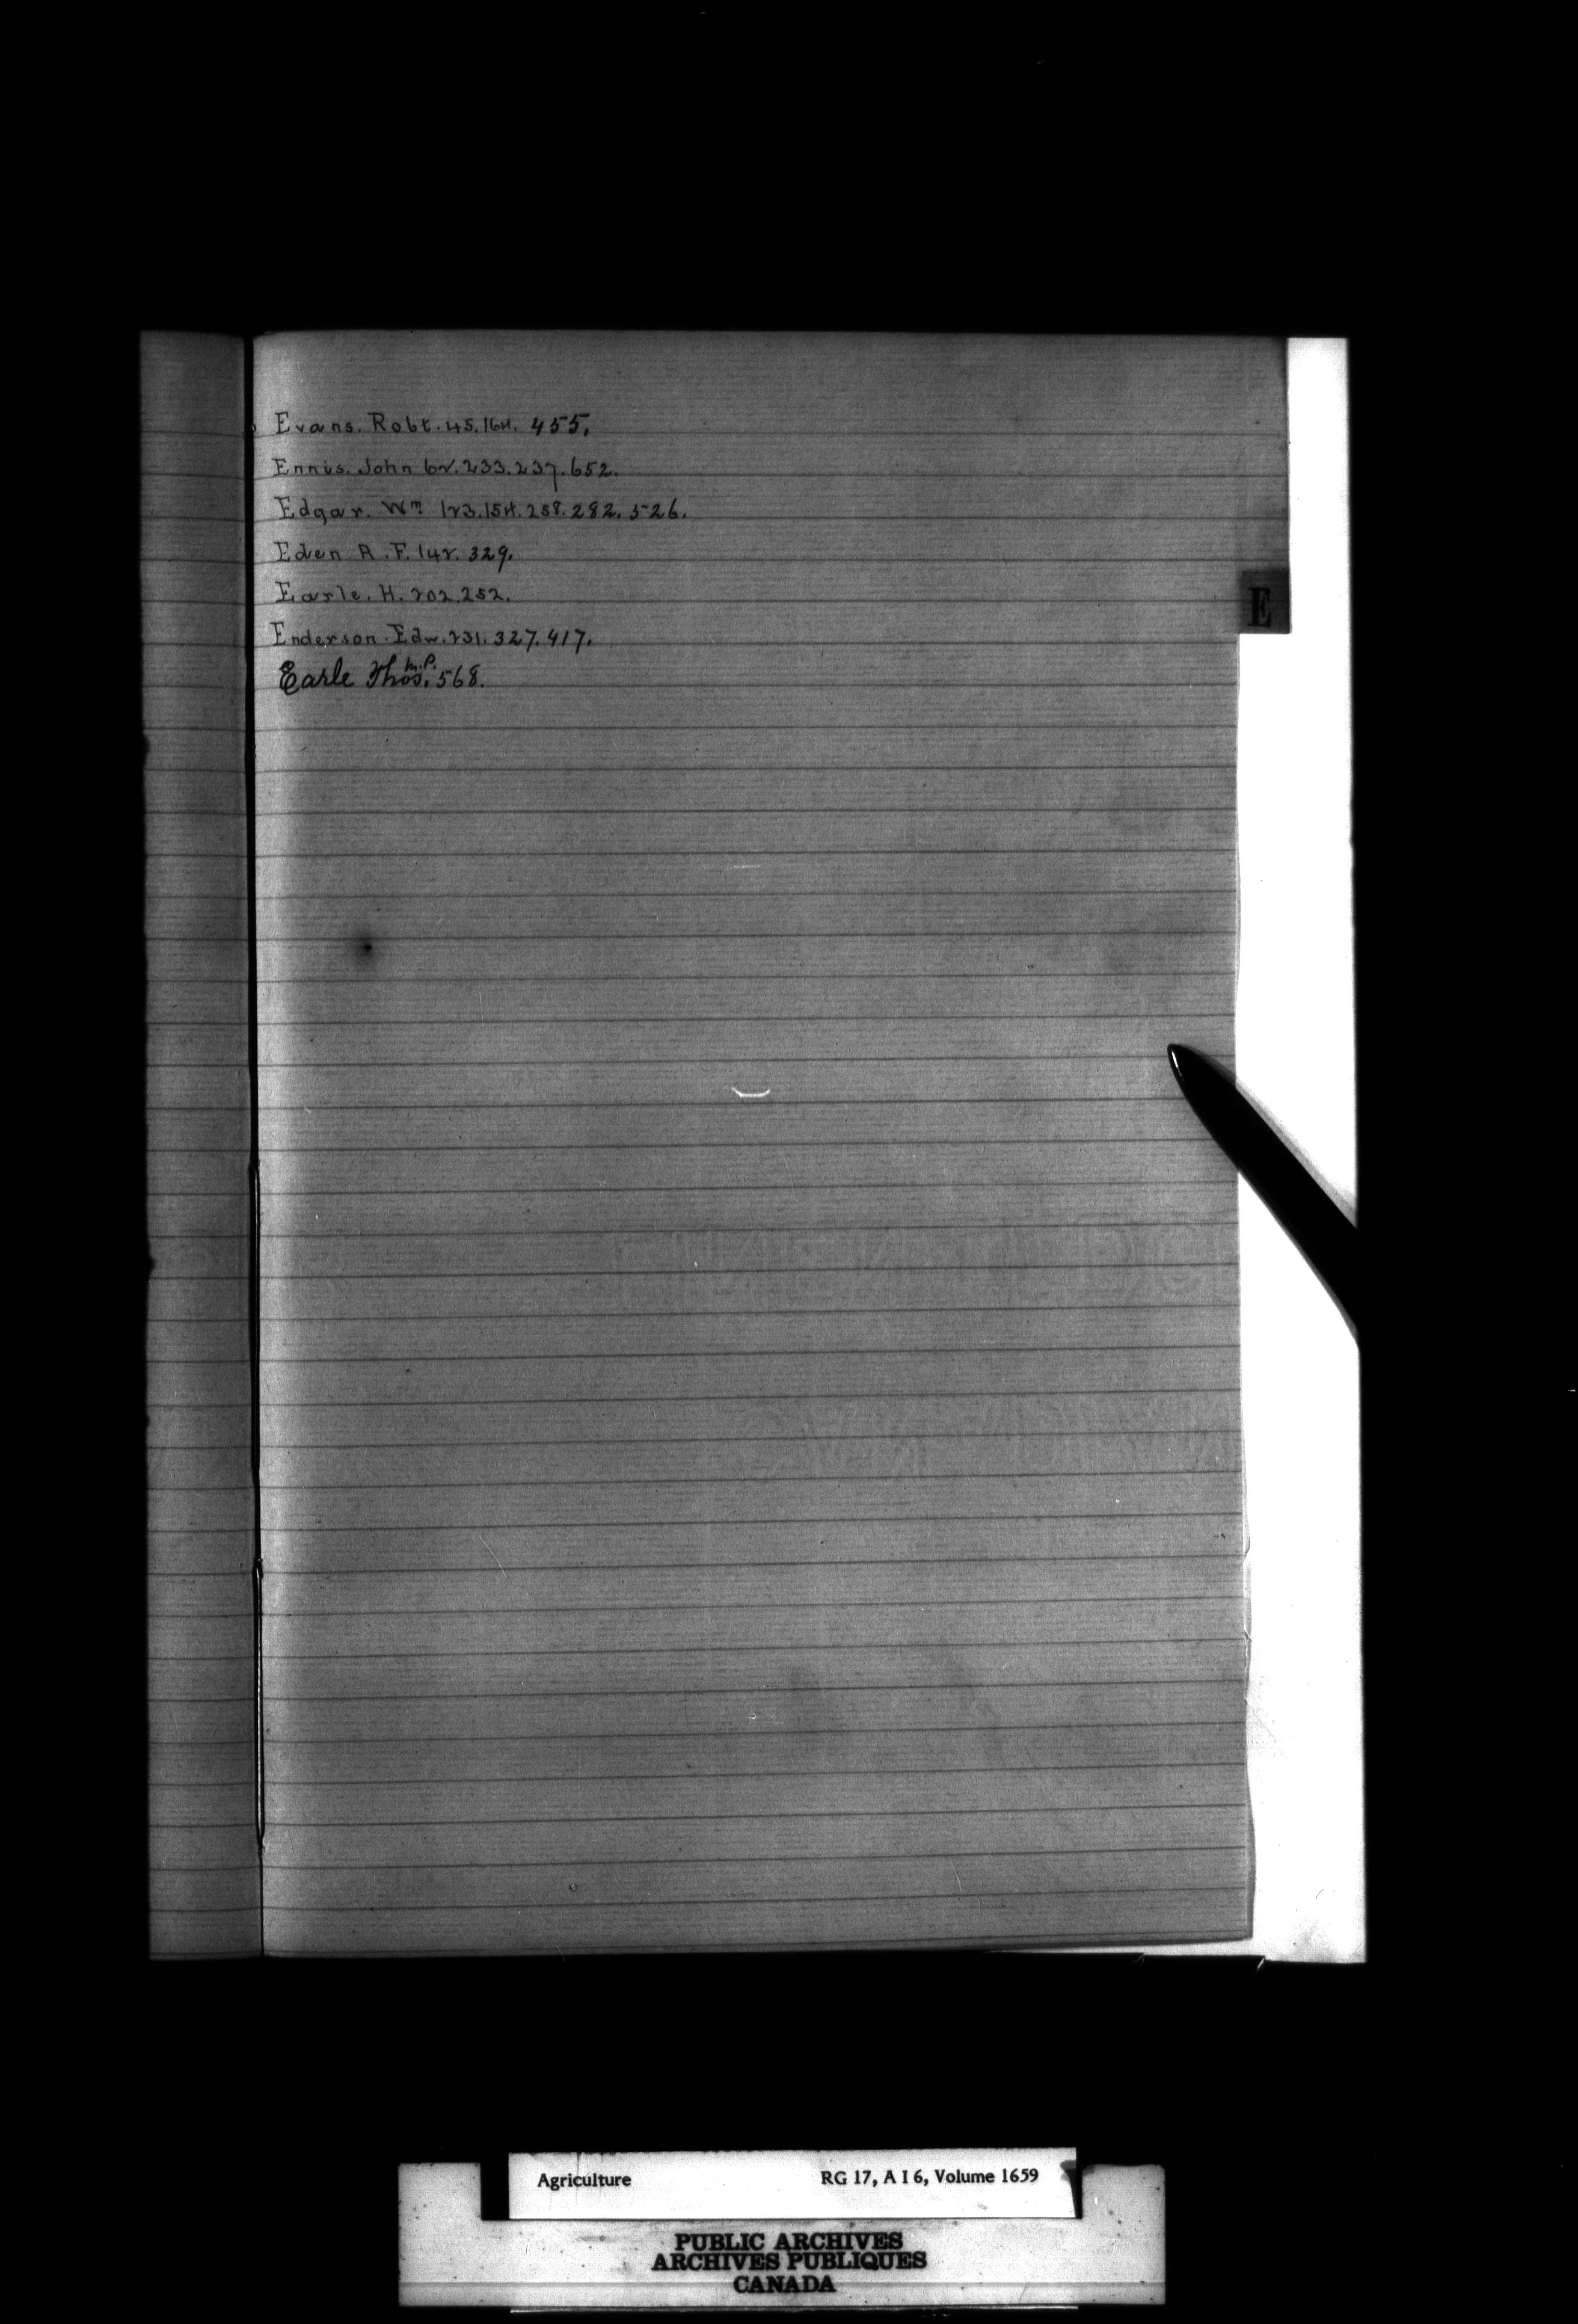 Evans. Robt. 45. 164. 455.
Ennis. John 62. 233. 237. 652.
Edgar. Wm 123. 154. 258. 282. 526.
Eden A. F. 142. 329.
Earle. H. 202. 252.
Enderson. Edw. 231. 327. 417.
Earle Thos. M.P. 568.
E
Agriculture RG 17, A I 6, Volume 1659
PUBLIC ARCHIVES
ARCHIVES PUBLIQUES
CANADA